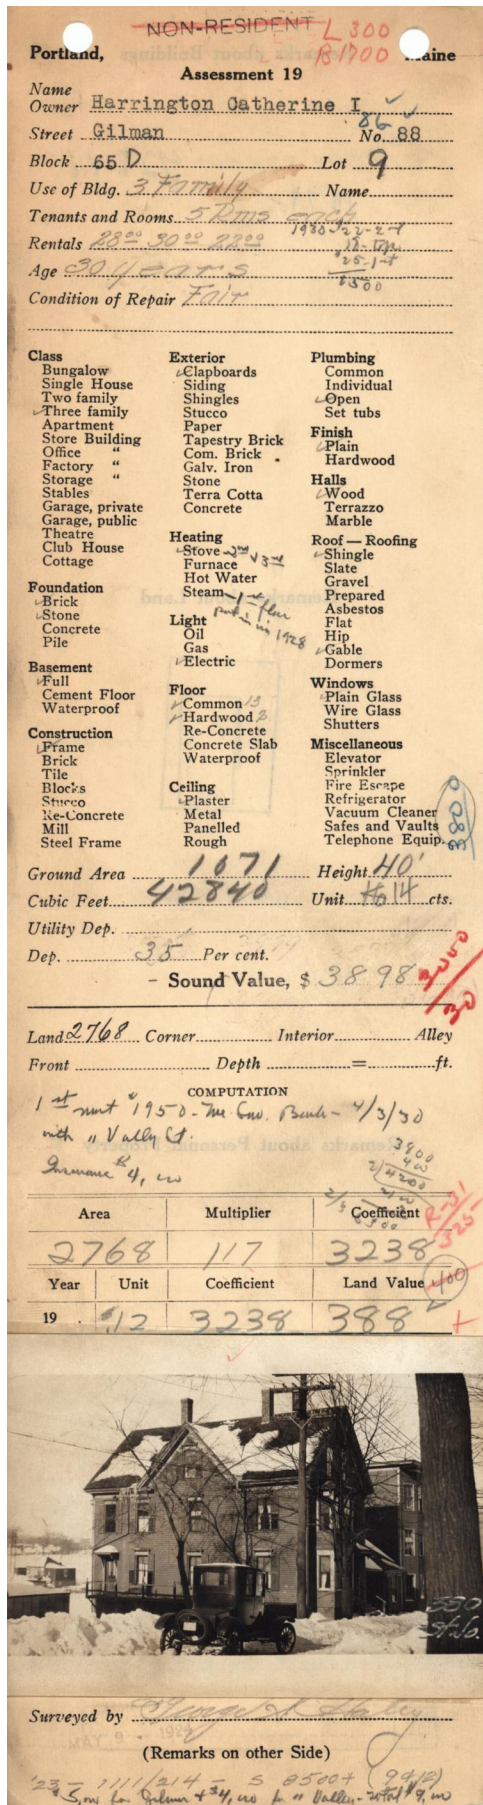 NON-RESIDENT L 300
Portland, B1700 Maine
Assessment 19
Name
Owner Harrington Catherine I
86
Street Gilman No. 88
Block 65 D Lot 9
Use of Bldg. 3 Family Name
Tenants and Rooms 5 Rms each
1930 $22-2nd
Rentals 28 00 30 00 22 00 18-Top
$25-1st
Age 30 years $500
Condition of Repair Fair
Class
Bungalow
Single House
Two family
✓Three family
Apartment
Store Building
Office "
Factory "
Storage "
Stables
Garage, private
Garage, public
Theatre
Club House
Cottage
Foundation
✓Brick
✓Stone
Concrete
Pile
Basement
✓Full
Cement Floor
Waterproof
Construction
✓Frame
Brick
Tile
Blocks
Stucco
Re-Concrete
Mill
Steel Frame
Exterior
✓Clapboards
Siding
Shingles
Stucco
Paper
Tapestry Brick
Com. Brick
Galv. Iron
Stone
Terra Cotta
Concrete
Heating
✓Stove 2nd & 3rd
Furnace
Hot Water
Steam - 1st floor
put in in 1928
Light
Oil
Gas
✓Electric
Floor
✓Common 13
✓Hardwood 2
Re-Concrete
Concrete Slab
Waterproof
Ceiling
✓Plaster
Metal
Panelled
Rough
Plumbing
Common
Individual
✓Open
Set tubs
Finish
✓Plain
Hardwood
Halls
✓Wood
Terrazzo
Marble
Roof — Roofing
✓Shingle
Slate
Gravel
Prepared
Asbestos
Flat
Hip
✓Gable
Dormers
Windows
✓Plain Glass
Wire Glass
Shutters
Miscellaneous
Elevator
Sprinkler
Fire Escape
Refrigerator
Vacuum Cleaner
Safes and Vaults
Telephone Equip.
Ground Area 1071 Height 40'
Cubic Feet 42840 Unit 14 cts.
Utility Dep.
Dep. 35 Per cent.
- Sound Value, $ 3898
3000
30
Land 2768 Corner Interior Alley
Front Depth = ft.
COMPUTATION
1st mort $1950 - Me Sav. Bank - 4/3/30
with " Vally St.
Insurance $4,000
3900
400
4200
R-31
325
Area Multiplier Coefficient
2768 117 3238
Year Unit Coefficient Land Value 400
19 . $.12 3238 388
550
Surveyed by
(Remarks on other Side)